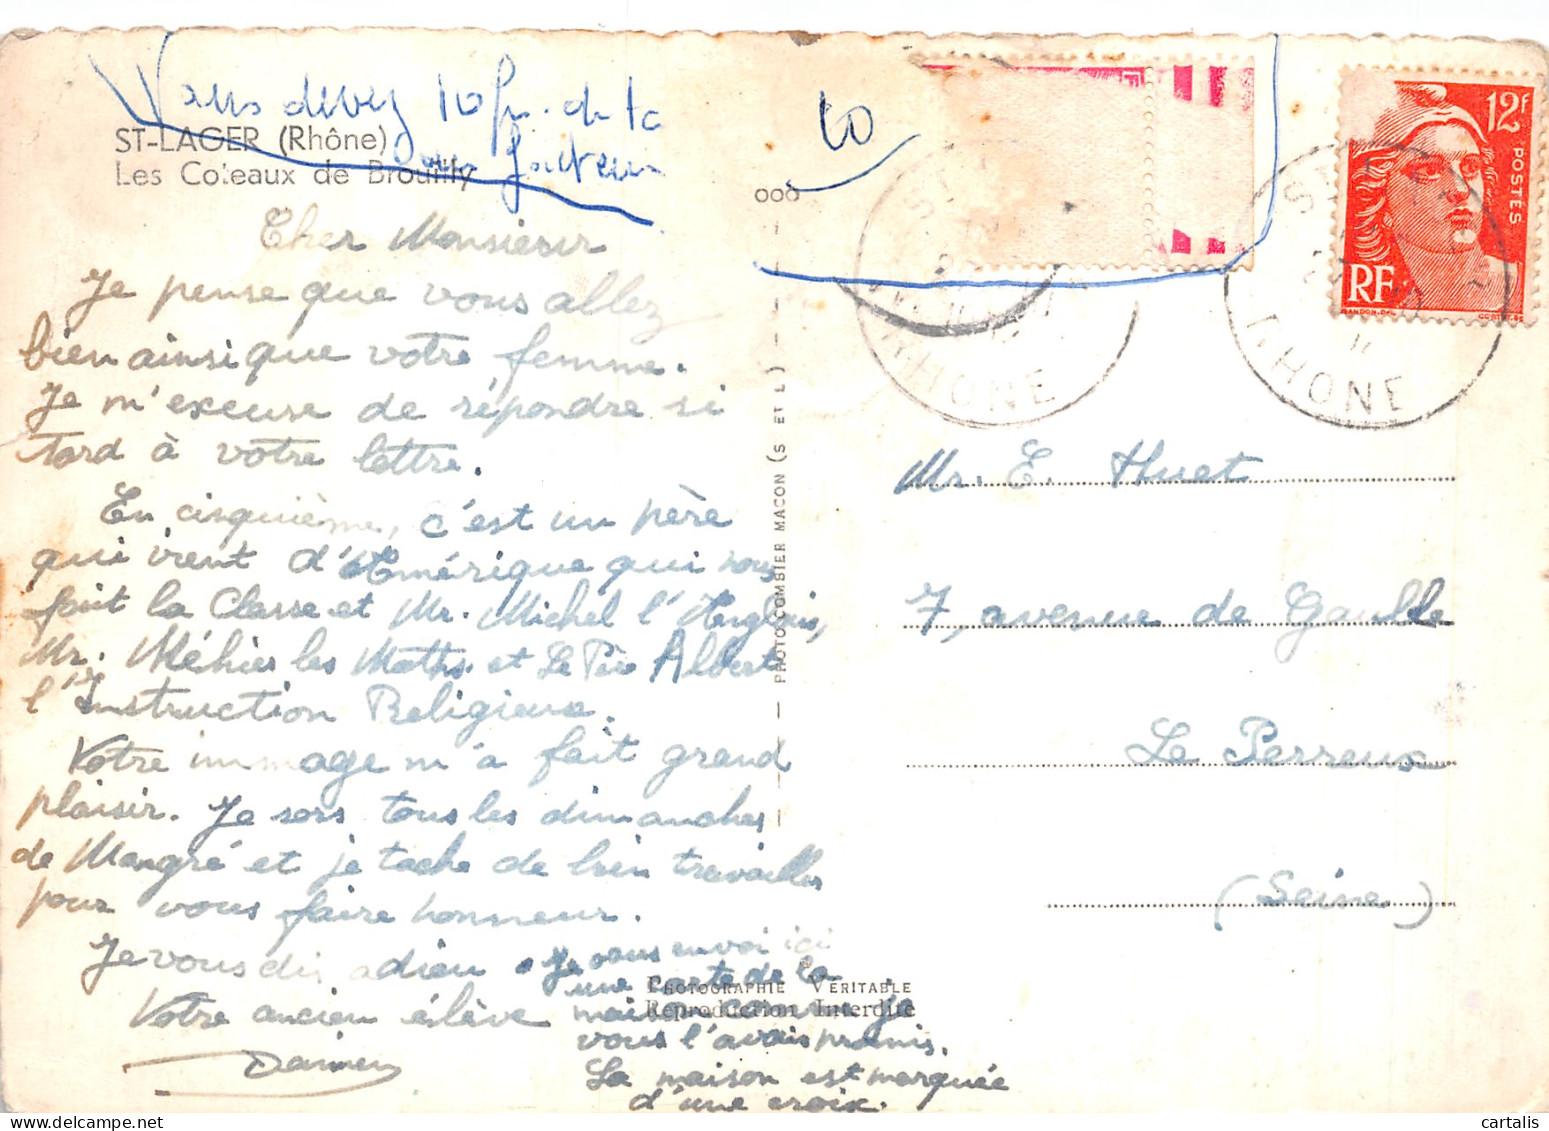 Vous devez 10 fr. de la
facteur
10
ST-LAGER (Rhône)
Les Coteaux de Brouilly
000
12F
POSTES
RF
GANDON.DEL
RHONE
RHONE
Cher Monsieur
Je pense que vous allez
bien ainsi que votre femme.
Je m'excuse de répondre si
tard à votre lettre.
En cinquième, c'est un père
qui vient d'Amérique qui nous
fait la Classe et Mr. Michel l'Anglais,
Mr. Méhier les Maths et Le Père Albert
l'Instruction Religieuse.
Votre immage m'a fait grand
plaisir. Je sors tous les dimanches
de Mongré et je tache de bien travailler
pour vous faire honneur.
Je vous dis adieu.
Votre ancien élève
Damien
Je vous envoi ici
une carte de la
maison comme je
vous l'avais promis.
La maison est marquée
d'une croix.
PHOTO COMBIER MACON (S ET L)
PHOTOGRAPHIE VÉRITABLE
Reproduction Interdite
Mr. E. Huet
7, avenue de Gaulle
Le Perreux
(Seine)
cartalis